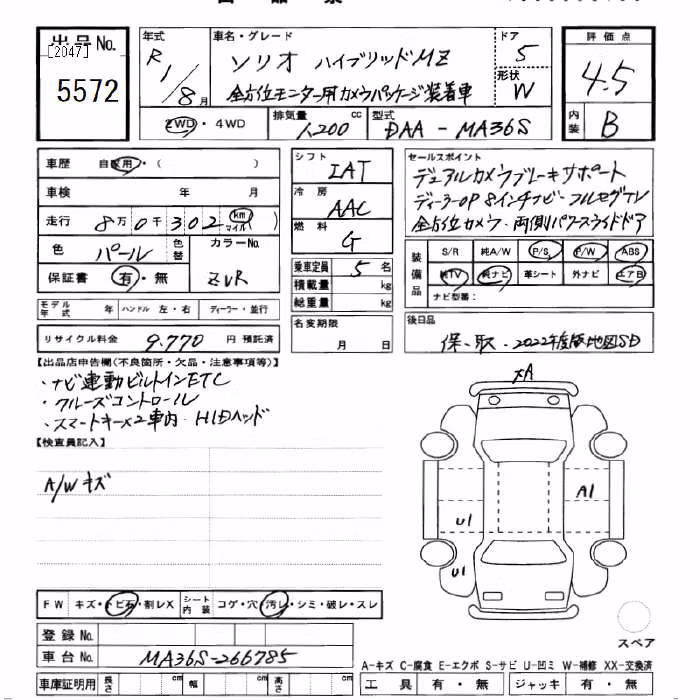 出品No. 年式 車名・グレード ドア 評価点
[2047] R1/8月 ソリオ ハイブリッドMZ 5 4.5
5572 全方位モニター用カメラパッケージ装着車 形状 W
2WD・4WD 排気量 1,200 cc 型式 DAA-MA36S 内装 B
車歴 自家用・( )
車検 年 月
走行 8万0千302 km マイル
色 パール 色替 カラーNo. ZVR
保証書 有・無
モデル年式 年 ハンドル 左・右 ディーラー・並行
リサイクル料金 9,770 円 預託済
シフト IAT
冷房 AAC
燃料 G
乗車定員 5 名
積載量 kg
総重量 kg
名変期限 月 日
セールスポイント
デュアルカメラブレーキサポート
ディーラーOP 8インチナビ・フルセグTV
全方位カメラ・両側パワースライドドア
装備品 S/R 純A/W P/S P/W ABS
純TV 純ナビ 革シート 外ナビ エアB
ナビ型番:
後日品
保・取・2022年度版地図SD
【出品店申告欄(不良箇所・欠品・注意事項等)】
・ナビ連動ビルトインETC
・クルーズコントロール
・スマートキー×2車内・HIDヘッド
【検査員記入】
A/Wキズ
A
A1
U1
U1
スペア
FW キズ・トビ石・割レX シート内装 コゲ・穴・汚レ・シミ・破レ・スレ
登録No.
車台No. MA36S-266785
車庫証明用 長さ cm 幅 cm 高さ cm
A-キズ C-腐食 E-エクボ S-サビ U-凹ミ W-補修 XX-交換済
工具 有・無 ジャッキ 有・無